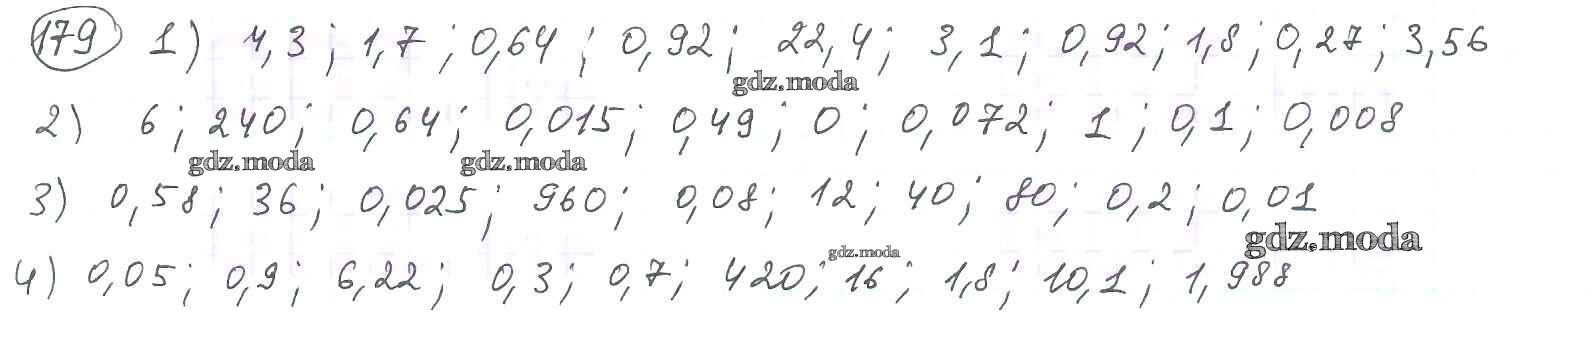 179 1) 4,3; 1,7; 0,64; 0,92; 22,4; 3,1; 0,92; 1,8; 0,27; 3,56
gdz.moda
2) 6; 240; 0,64; 0,015; 0,49; 0; 0,072; 1; 0,1; 0,008
gdz.moda gdz.moda
3) 0,58; 36; 0,025; 960; 0,08; 12; 40; 80; 0,2; 0,01
gdz.moda
gdz.moda
4) 0,05; 0,9; 6,22; 0,3; 0,7; 420; 16; 1,8; 10,1; 1,988